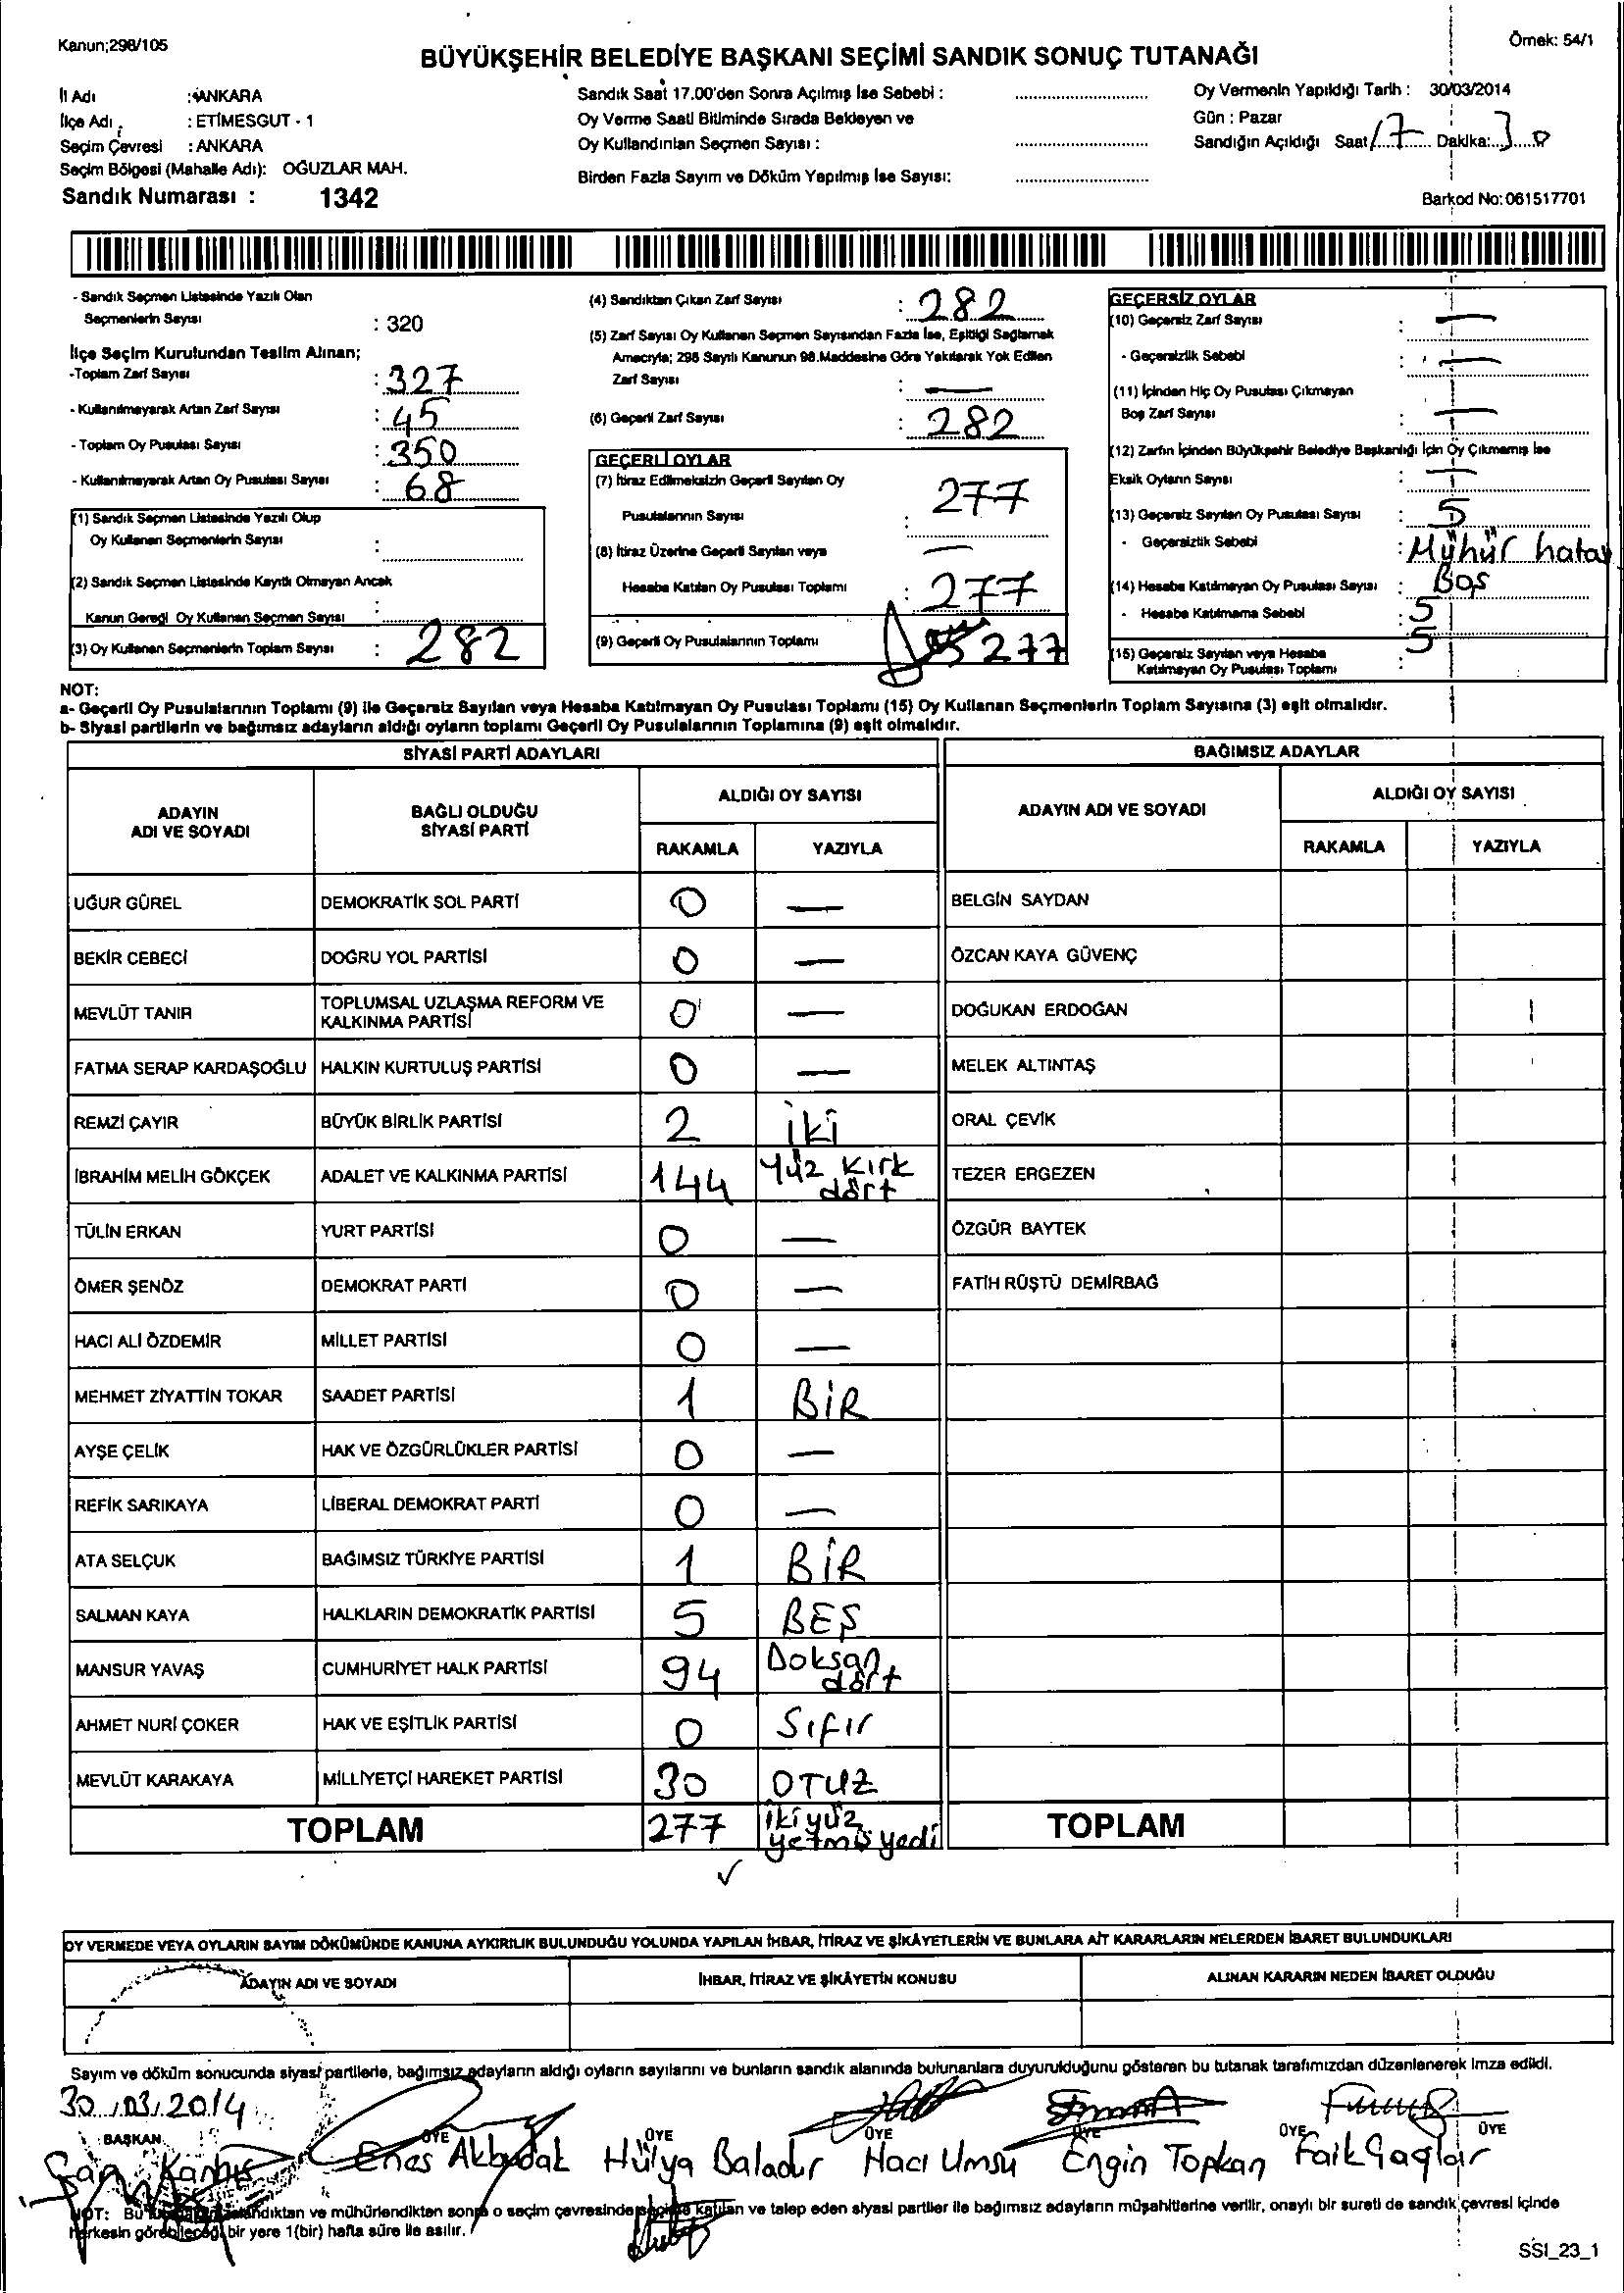 Kanun;298/105
Örnek: 54/1
BÜYÜKŞEHİR BELEDİYE BAŞKANI SEÇİMİ SANDIK SONUÇ TUTANAĞI
İl Adı : ANKARA
İlçe Adı : ETİMESGUT - 1
Seçim Çevresi : ANKARA
Seçim Bölgesi (Mahalle Adı): OĞUZLAR MAH.
Sandık Numarası : 1342
Sandık Saat 17.00'den Sonra Açılmış İse Sebebi :
Oy Verme Saati Bitiminde Sırada Bekleyen ve
Oy Kullandırılan Seçmen Sayısı :
Birden Fazla Sayım ve Döküm Yapılmış İse Sayısı:
Oy Vermenin Yapıldığı Tarih : 30/03/2014
Gün : Pazar
Sandığın Açıldığı Saat 17 Dakika: 30
Barkod No: 061517701
- Sandık Seçmen Listesinde Yazılı Olan
Seçmenlerin Sayısı : 320
İlçe Seçim Kurulundan Teslim Alınan;
-Toplam Zarf Sayısı : 327
- Kullanılmayarak Artan Zarf Sayısı : 45
- Toplam Oy Pusulası Sayısı : 350
- Kullanılmayarak Artan Oy Pusulası Sayısı : 68
(1) Sandık Seçmen Listesinde Yazılı Olup
Oy Kullanan Seçmenlerin Sayısı :
(2) Sandık Seçmen Listesinde Kayıtlı Olmayan Ancak
Kanun Gereği Oy Kullanan Seçmen Sayısı :
(3) Oy Kullanan Seçmenlerin Toplam Sayısı : 282
(4) Sandıktan Çıkan Zarf Sayısı : 282
(5) Zarf Sayısı Oy Kullanan Seçmen Sayısından Fazla İse, Eşitliği Sağlamak
Amacıyla; 298 Sayılı Kanunun 98.Maddesine Göre Yakılarak Yok Edilen
Zarf Sayısı : —
(6) Geçerli Zarf Sayısı : 282
GEÇERLİ OYLAR
(7) İtiraz Edilmeksizin Geçerli Sayılan Oy
Pusulalarının Sayısı : 277
(8) İtiraz Üzerine Geçerli Sayılan veya —
Hesaba Katılan Oy Pusulası Toplamı : 277
(9) Geçerli Oy Pusulalarının Toplamı 277
GEÇERSİZ OYLAR
(10) Geçersiz Zarf Sayısı : —
- Geçersizlik Sebebi : —
(11) İçinden Hiç Oy Pusulası Çıkmayan
Boş Zarf Sayısı : —
(12) Zarfın İçinden Büyükşehir Belediye Başkanlığı İçin Oy Çıkmamış İse
Eksik Oyların Sayısı : —
(13) Geçersiz Sayılan Oy Pusulası Sayısı : 5
- Geçersizlik Sebebi : Mühür hatası
(14) Hesaba Katılmayan Oy Pusulası Sayısı : Boş
- Hesaba Katılmama Sebebi : 5
(15) Geçersiz Sayılan veya Hesaba
Katılmayan Oy Pusulası Toplamı : 5
NOT:
a- Geçerli Oy Pusulalarının Toplamı (9) ile Geçersiz Sayılan veya Hesaba Katılmayan Oy Pusulası Toplamı (15) Oy Kullanan Seçmenlerin Toplam Sayısına (3) eşit olmalıdır.
b- Siyasi partilerin ve bağımsız adayların aldığı oyların toplamı Geçerli Oy Pusulalarının Toplamına (9) eşit olmalıdır.
SİYASİ PARTİ ADAYLARI BAĞIMSIZ ADAYLAR
ADAYIN ADI VE SOYADI BAĞLI OLDUĞU SİYASİ PARTİ ALDIĞI OY SAYISI ADAYIN ADI VE SOYADI ALDIĞI OY SAYISI
RAKAMLA YAZIYLA RAKAMLA YAZIYLA
UĞUR GÜREL DEMOKRATİK SOL PARTİ 0 — BELGİN SAYDAN
BEKİR CEBECİ DOĞRU YOL PARTİSİ 0 — ÖZCAN KAYA GÜVENÇ
MEVLÜT TANIR TOPLUMSAL UZLAŞMA REFORM VE KALKINMA PARTİSİ 0 — DOĞUKAN ERDOĞAN
FATMA SERAP KARDAŞOĞLU HALKIN KURTULUŞ PARTİSİ 0 — MELEK ALTINTAŞ
REMZİ ÇAYIR BÜYÜK BİRLİK PARTİSİ 2 iki ORAL ÇEVİK
İBRAHİM MELİH GÖKÇEK ADALET VE KALKINMA PARTİSİ 144 Yüz Kırk dört TEZER ERGEZEN
TÜLİN ERKAN YURT PARTİSİ 0 — ÖZGÜR BAYTEK
ÖMER ŞENÖZ DEMOKRAT PARTİ 0 — FATİH RÜŞTÜ DEMİRBAĞ
HACI ALİ ÖZDEMİR MİLLET PARTİSİ 0 —
MEHMET ZİYATTİN TOKAR SAADET PARTİSİ 1 BİR
AYŞE ÇELİK HAK VE ÖZGÜRLÜKLER PARTİSİ 0 —
REFİK SARIKAYA LİBERAL DEMOKRAT PARTİ 0 —
ATA SELÇUK BAĞIMSIZ TÜRKİYE PARTİSİ 1 BİR
SALMAN KAYA HALKLARIN DEMOKRATİK PARTİSİ 5 BEŞ
MANSUR YAVAŞ CUMHURİYET HALK PARTİSİ 94 Doksan dört
AHMET NURİ ÇOKER HAK VE EŞİTLİK PARTİSİ 0 Sıfır
MEVLÜT KARAKAYA MİLLİYETÇİ HAREKET PARTİSİ 30 OTUZ
TOPLAM 277 ikiyüz yetmiş yedi TOPLAM
OY VERMEDE VEYA OYLARIN SAYIM DÖKÜMÜNDE KANUNA AYKIRILIK BULUNDUĞU YOLUNDA YAPILAN İHBAR, İTİRAZ VE ŞİKÂYETLERİN VE BUNLARA AİT KARARLARIN NELERDEN İBARET BULUNDUKLARI
ADAYIN ADI VE SOYADI İHBAR, İTİRAZ VE ŞİKÂYETİN KONUSU ALINAN KARARIN NEDEN İBARET OLDUĞU
Sayım ve döküm sonucunda siyasi partilerle, bağımsız adayların aldığı oyların sayılarını ve bunların sandık alanında bulunanlara duyurulduğunu gösteren bu tutanak tarafımızdan düzenlenerek imza edildi.
30/03/2014
BAŞKAN ÜYE ÜYE ÜYE ÜYE ÜYE ÜYE
Enes Akbudak Hülya Baladur Hacı Umsu Engin Topkan Faik Çağlar
NOT: Bu ve mühürlendikten sonra o seçim çevresinde seçime katılan ve talep eden siyasi partiler ile bağımsız adayların müşahitlerine verilir, onaylı bir sureti de sandık çevresi içinde
herkesin görebileceği bir yere 1(bir) hafta süre ile asılır.
SSI_23_1